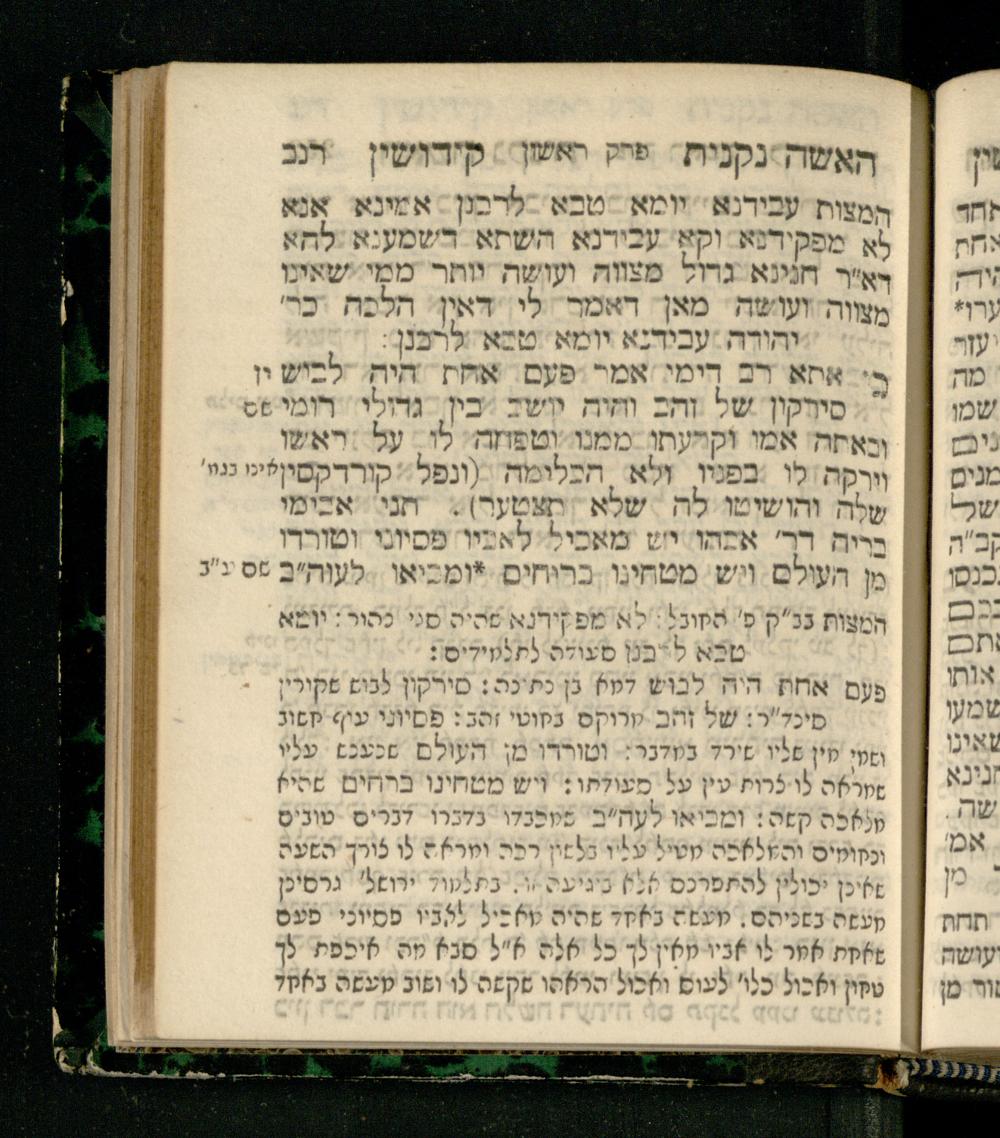 האשה נקנית פרק ראשון קידושין רנב
המצות עבידנא יומא טבא לרבנן אמינא אנא
לא מפקידנא וקא עבידנא השתא דשמענא להא
דא״ר חנינא גדול מצווה ועושה יותר ממי שאינו
מצווה ועושה מאן דאמר לי דאין הלכה כר׳
יהודה עבידנא יומא טבא לרבנן :
כי אתא רב דימי אמר פעם אחת היה לבוש יז
סירקון של זהב והיה יושב בין גדולי רומי שם
ובאתה אמו וקרעתו ממנו וטפחה לו על ראשו
וירקה לו בפניו ולא הכלימה (ונפל קורדקסין אינו בגמ׳
שלה והושיטו לה שלא תצטער). תני אבימי
בריה דר׳ אבהו יש מאכיל לאביו פסיוני וטורדו
מן העולם ויש מטחינו ברחים *ומביאו לעוה״ב שם ע״ב
המצות בב״ק פ׳ החובל : לא מפקידנא שהיה סגי נהור : יומא
טבא לרבנן סעודה לתלמידים :
פעם אחת היה לבוש דמא בן נתינה : סירקון לבוש שקורין
סינד״ר : של זהב מרוקם בחוטי זהב : פסיוני עוף חשוב
ושמן מין שליו שירד במדבר : וטורדו מן העולם שנענש עליו
שמראה לו צרות עין על סעודתו : ויש מטחינו ברחים שהיא
מלאכה קשה : ומביאו לעה״ב שמכבדו בדברו דברים טובים
ונחומים והמלאכה מטיל עליו בלשון רכה ומראה לו צורך השעה
שאינן יכולין להתפרנס אלא ביגיעה זו. בתלמוד ירושל׳ גרסינן
מעשה בשניהם. מעשה באחד שהיה מאכיל לאביו פסיוני פעם
שאחת אמר לו אביו מאין לך כל אלה א״ל סבא מה איכפת לך
טחון ואכול כלו׳ לעוס ואכול הראהו שקשה לו ושוב מעשה באחד